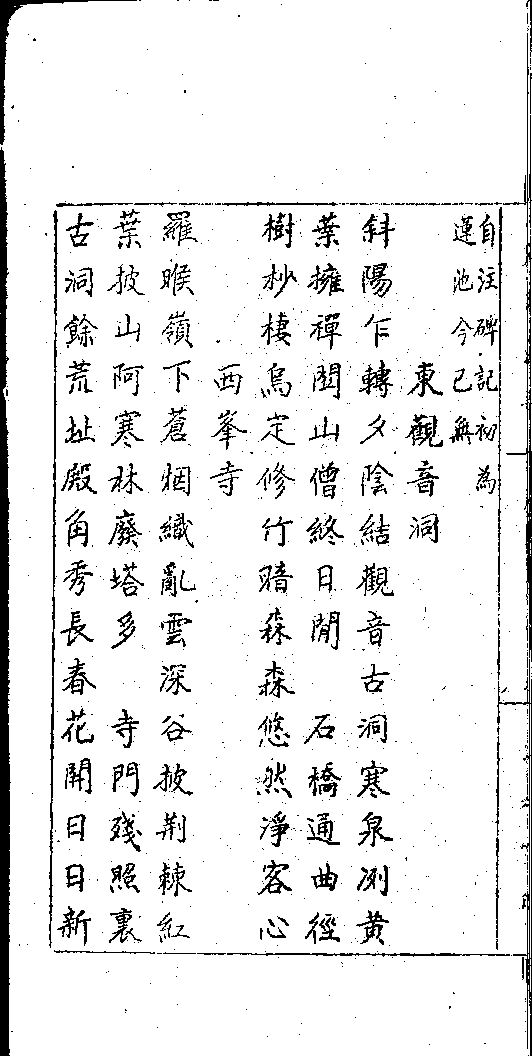 自注碑記初為
蓮池今已無
東觀音洞
斜陽乍轉夕陰結觀音古洞寒泉冽黃
葉擁禪關山僧終日閒　石橋通曲徑
樹杪棲烏定修竹暗森森悠然淨客心
西峯寺
羅睺嶺下蒼烟織亂雲深谷披荆棘紅
葉披山阿寒林廢塔多　寺門殘照裏
古洞餘荒址殿角秀長春花開日日新